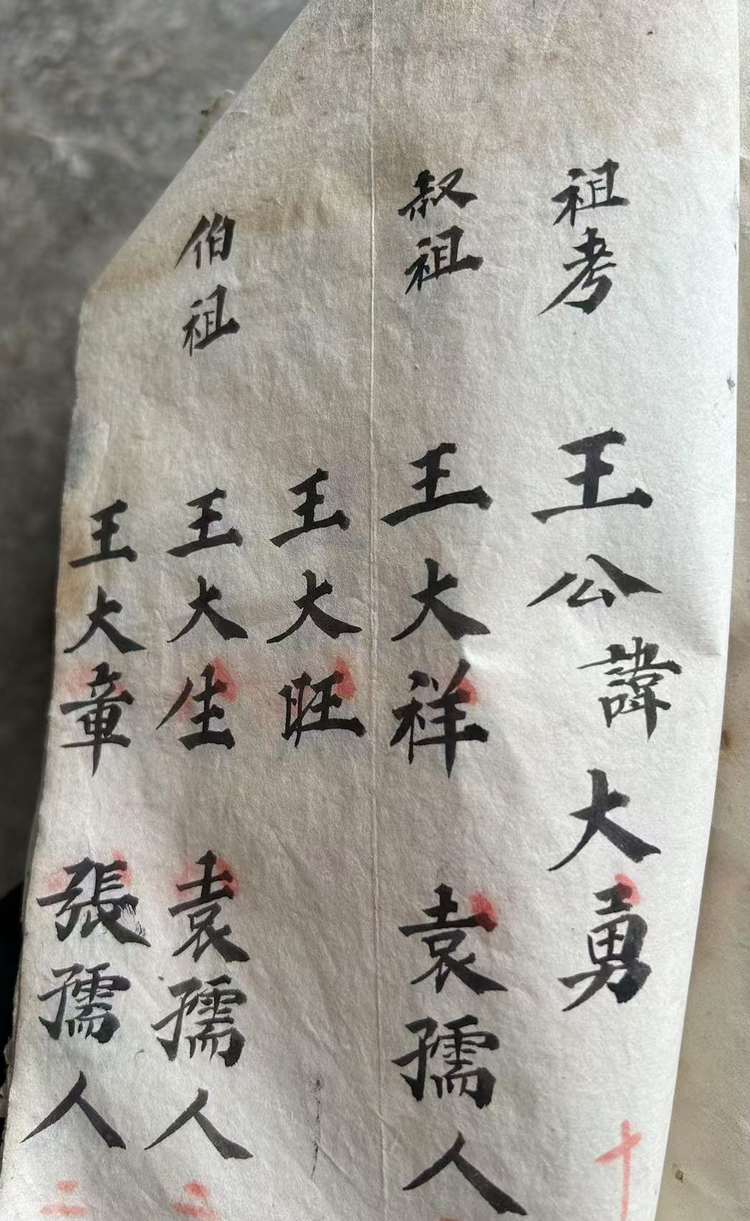 祖考 王公諱大勇 十
叔祖 王大祥 袁孺人
王大旺
伯祖 王大生 袁孺人 二
王大章 張孺人 二